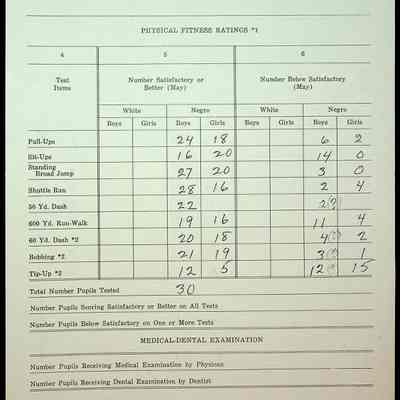 PHYSICAL FITNESS RATINGS *1
4 5 6
Test Items Number Satisfactory or Better (May) Number Below Satisfactory (May)
White Negro White Negro
Boys Girls Boys Girls Boys Girls Boys Girls
Pull-Ups 24 18 6 2
Sit-Ups 16 20 14 0
Standing Broad Jump 27 20 3 0
Shuttle Run 28 16 2 4
50 Yd. Dash 22 2(?)
600 Yd. Run-Walk 19 16 11 4
60 Yd. Dash *2 20 18 4(?) 2
Bobbing *2 21 19 3(?) 1
Tip-Up *2 12 5 12(?) 15
Total Number Pupils Tested 30
Number Pupils Scoring Satisfactory or Better on All Tests
Number Pupils Below Satisfactory on One or More Tests
MEDICAL-DENTAL EXAMINATION
Number Pupils Receiving Medical Examination by Physican
Number Pupils Receiving Dental Examination by Dentist